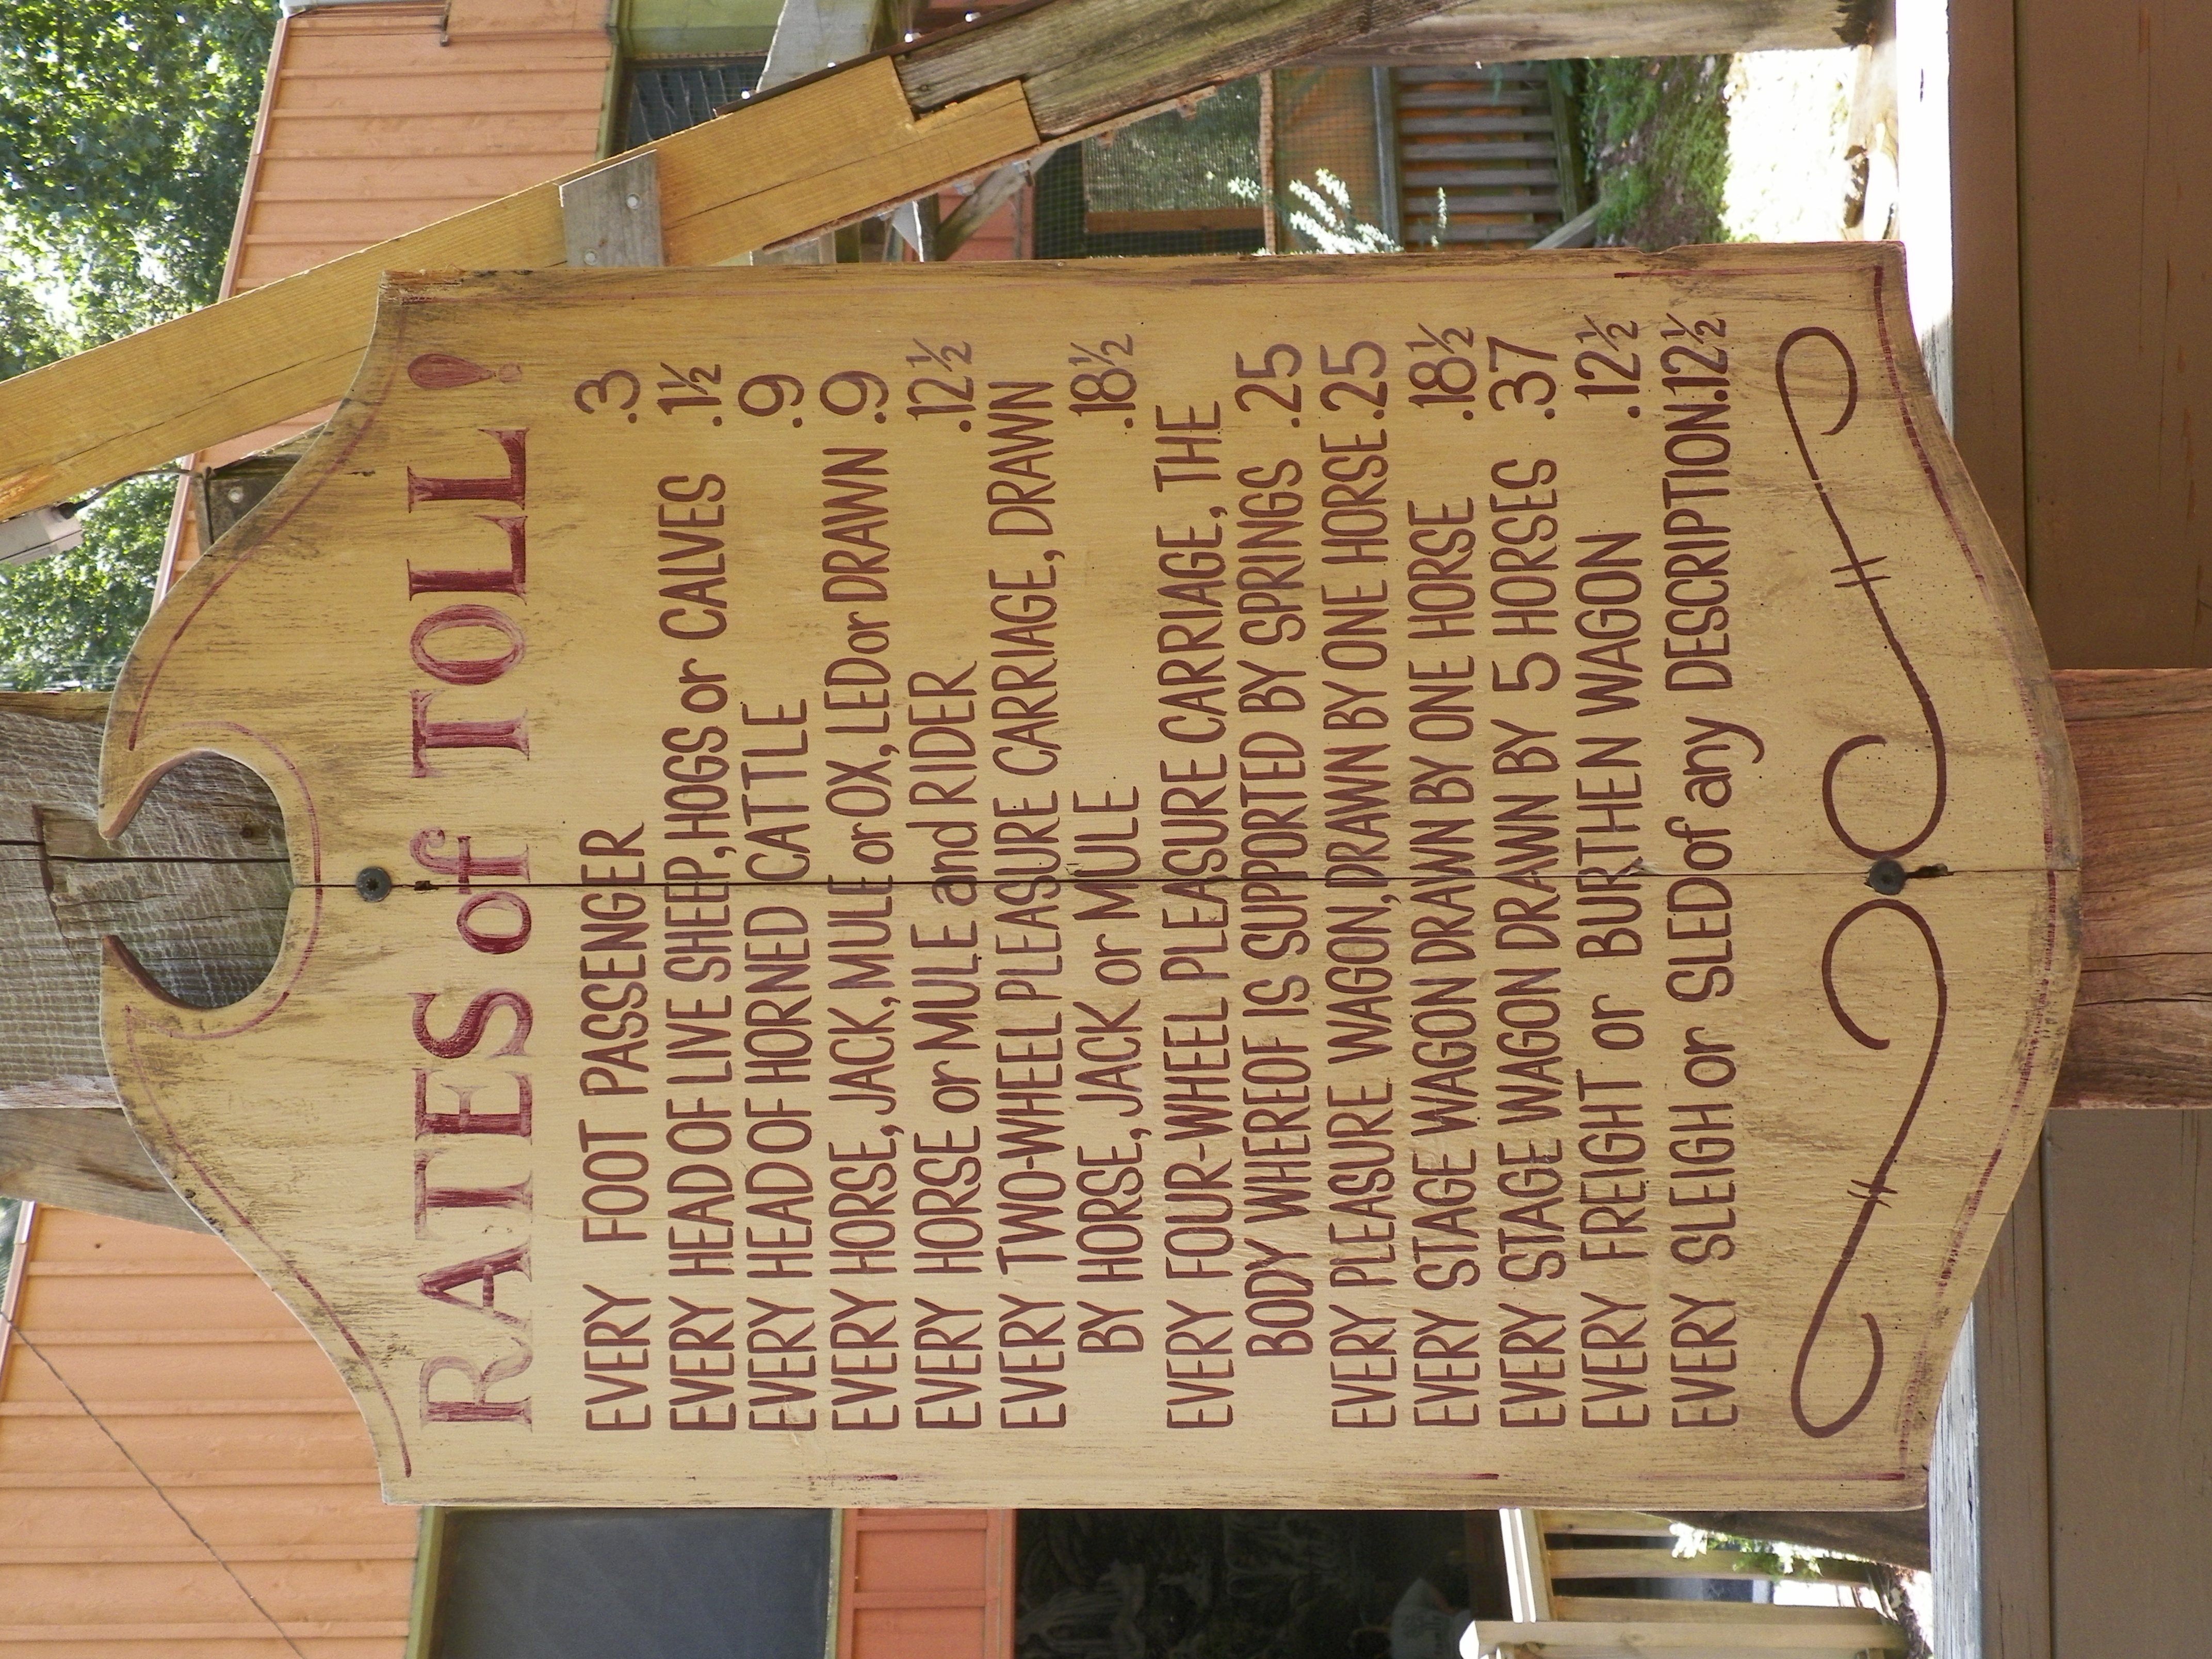 RATES of TOLL!
EVERY FOOT PASSENGER .3
EVERY HEAD OF LIVE SHEEP, HOGS or CALVES .1½
EVERY HEAD OF HORNED CATTLE .9
EVERY HORSE, JACK, MULE or OX, LED or DRAWN .9
EVERY HORSE or MULE and RIDER .12½
EVERY TWO-WHEEL PLEASURE CARRIAGE, DRAWN
BY HORSE, JACK or MULE .18½
EVERY FOUR-WHEEL PLEASURE CARRIAGE, THE
BODY WHEREOF IS SUPPORTED BY SPRINGS .25
EVERY PLEASURE WAGON, DRAWN BY ONE HORSE .25
EVERY STAGE WAGON DRAWN BY ONE HORSE .18½
EVERY STAGE WAGON DRAWN BY 5 HORSES .37
EVERY FREIGHT or BURTHEN WAGON .12½
EVERY SLEIGH or SLED of any DESCRIPTION .12½